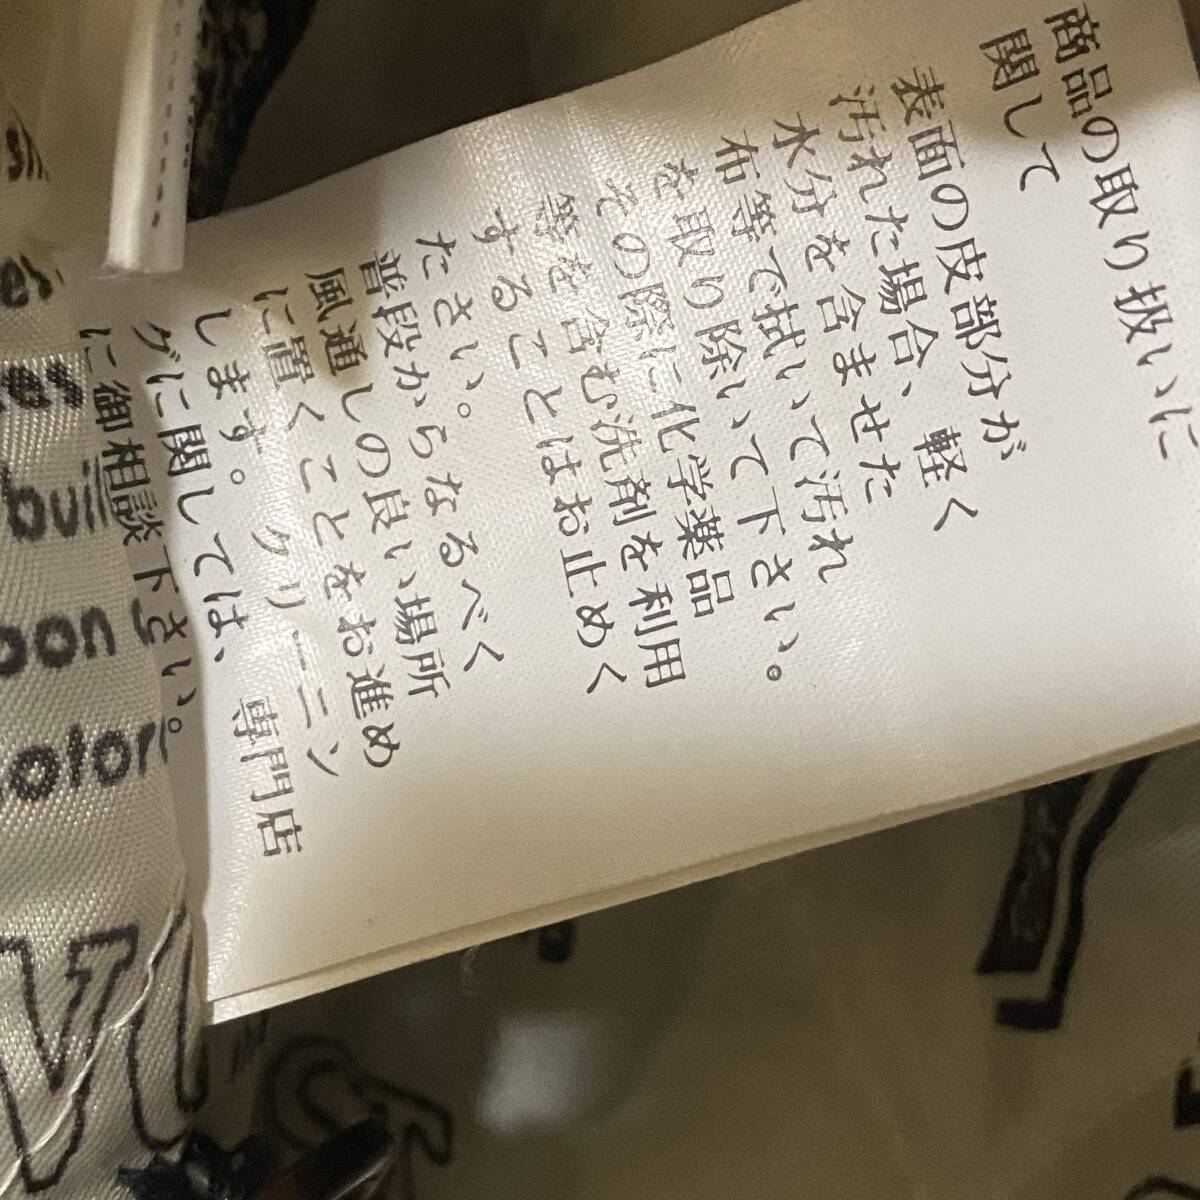 商品の取り扱いに
関して
表面の皮部分が
汚れた場合、軽く
水分を含ませた
布等で拭いて汚れ
を取り除いて下さい。
その際に化学薬品
等を含む洗剤を利用
することはお止めく
ださい。
普段からなるべく
風通しの良い場所
に置くことをお進め
します。クリーニン
グに関しては、専門店
に御相談下さい。
buil
oon
olori